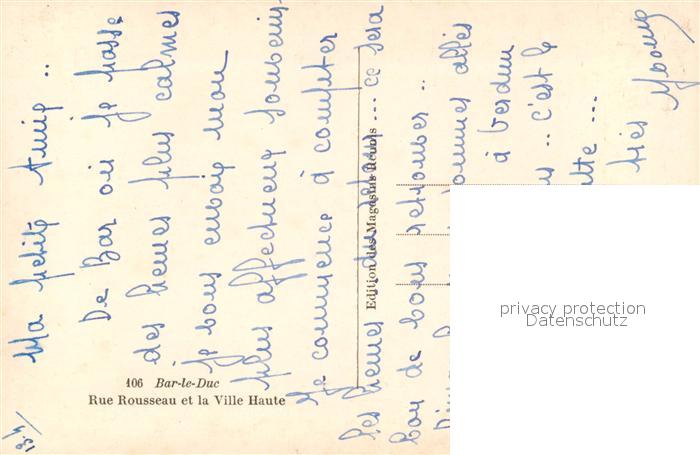 13.4/
Ma petite Amie..
De Bar où je passe
des heures plus calmes
je vous envoie mon
plus affectueux souvenir.
Je commence à compter
les heures du retour ... ce sera
bon de vous retrouver ..
sommes allés
à Verdun
.. c'est
...
très
106 Bar-le-Duc
Rue Rousseau et la Ville Haute
Edition des Magasins Réunis
privacy protection
Datenschutz